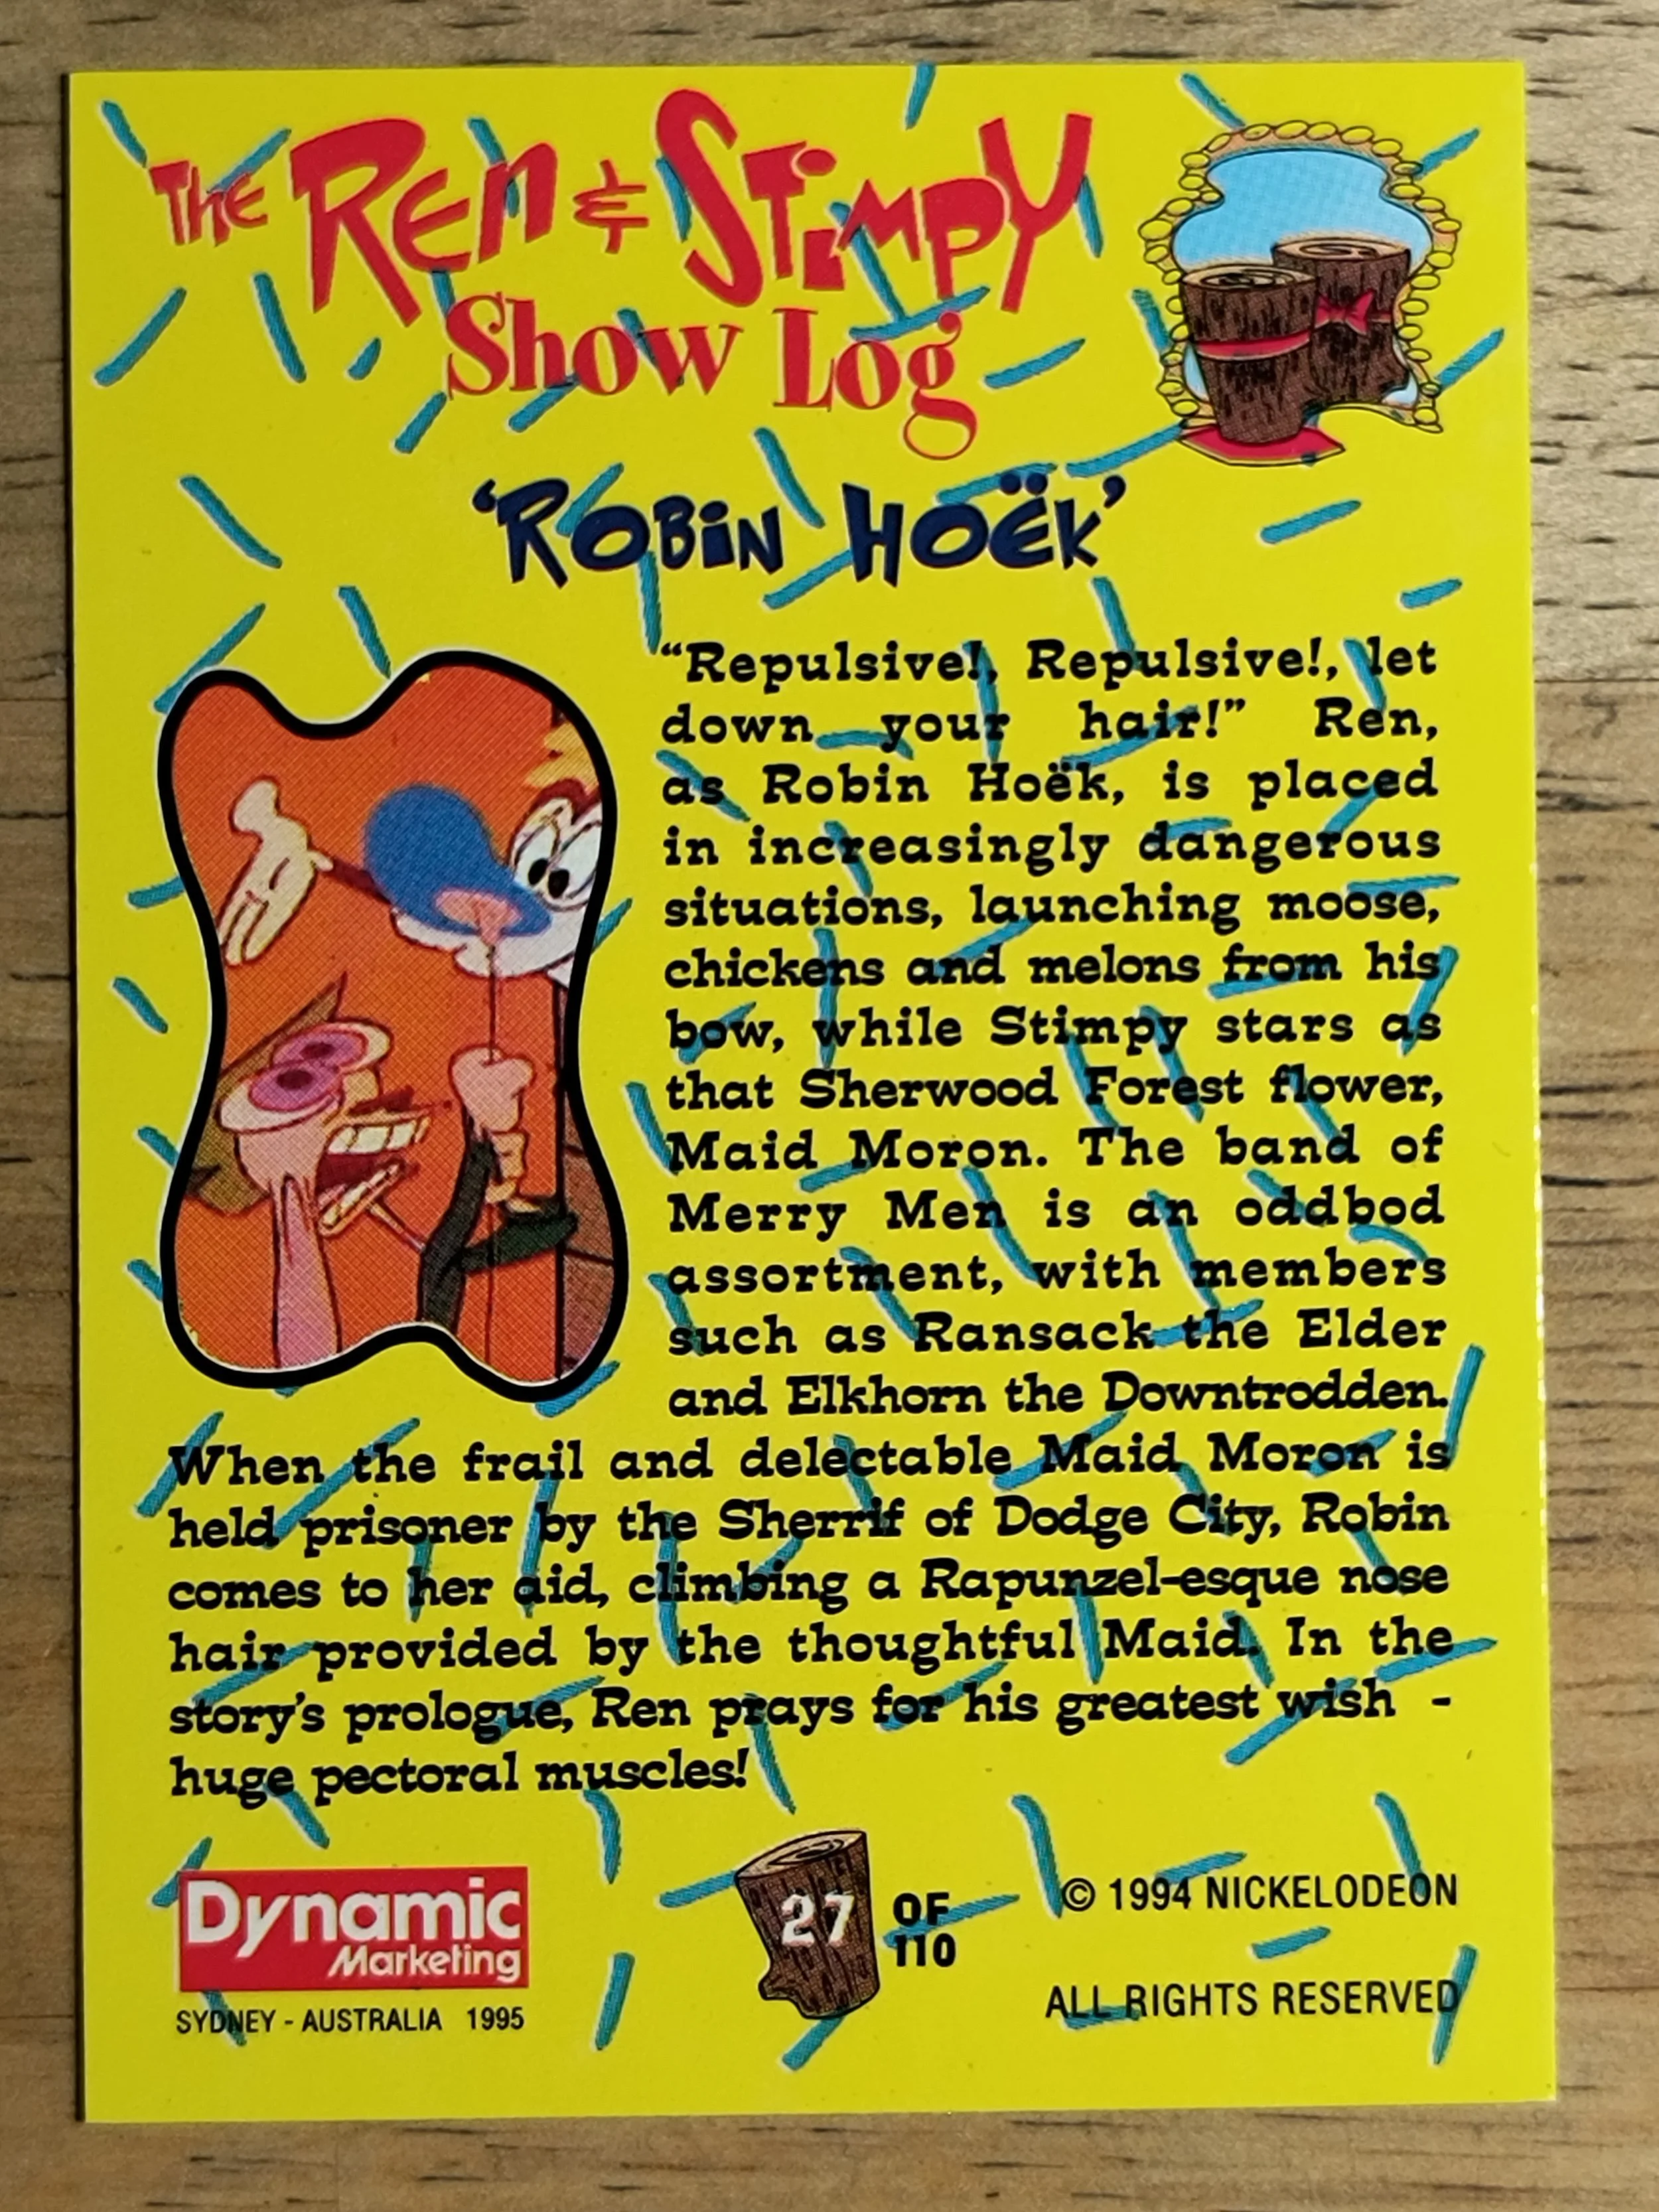 THE REN & STIMPY
Show Log
'ROBIN HOËK'
“Repulsive!, Repulsive!, let
down your hair!” Ren,
as Robin Hoëk, is placed
in increasingly dangerous
situations, launching moose,
chickens and melons from his
bow, while Stimpy stars as
that Sherwood Forest flower,
Maid Moron. The band of
Merry Men is an oddbod
assortment, with members
such as Ransack the Elder
and Elkhorn the Downtrodden.
When the frail and delectable Maid Moron is
held prisoner by the Sherrif of Dodge City, Robin
comes to her aid, climbing a Rapunzel-esque nose
hair provided by the thoughtful Maid. In the
story's prologue, Ren prays for his greatest wish -
huge pectoral muscles!
Dynamic
Marketing
SYDNEY - AUSTRALIA 1995
27 OF
110
© 1994 NICKELODEON
ALL RIGHTS RESERVED